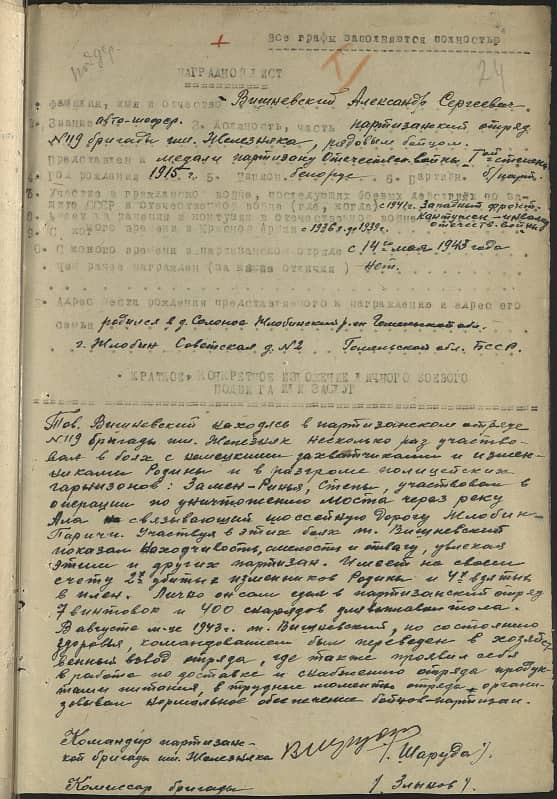 Все графы заполняются полностью
24
НАГРАДНОЙ ЛИСТ
фамилия, имя и отчество Вишневский Александр Сергеевич
2. Звание авто-шофер. 3. Должность, часть партизанский отряд
№119 бригады им. Железняка, рядовым бойцом.
Представлен к медали партизану Отечествен. войны, I ой степени
Год рождения 1915 г. 5. белорус 6. Партийн. б/парт.
7. Участие в гражданской войне, последующих боевых действиях по за-
щите СССР и отечественной войне (где, когда) с 1941 г. Западный фронт
8. Имеет ли ранения и контузии в отечественной войне контужен - инвалид
отечеств. войны
9. С какого времени в Красной армии с 1936 г. по 1939 г.
10. С какого времени в партизанском отряде с 14 го мая 1943 года
Чем ранее награжден (за какие отличия) нет.
Адрес места рождения представляемого к награждению и адрес его
семьи родился в д. Солоное Жлобинский р-он Гомельской обл.
г. Жлобин Советская д. №2 Гомельской обл. БССР.
КРАТКОЕ, КОНКРЕТНОЕ ИЗЛОЖЕНИЕ ЛИЧНОГО БОЕВОГО
ПОДВИГА ИЛИ ЗАСЛУГ
Тов. Вишневский находясь в партизанском отряде
№119 бригады им. Железняк несколько раз участво-
вал в боях с немецкими захватчиками и измен-
никами Родины и в разгроме полицейских
гарнизонов: Замен-Рынья, Степы, участвовал в
операции по уничтожению моста через реку
Ала связывающий шоссейную дорогу Жлобин-
Паричи. Участвуя в этих боях т. Вишневский
показал находчивость, смелость и отвагу, увлекая
этим и других партизан. Имеет на своем
счету 2х убитых изменников Родины и 4х взятых
в плен. Лично он сам сдал в партизанский отряд
7 винтовок и 400 снарядов для выплавки тола.
В августе м-це 1943 г. т. Вишневский, по состоянию
здоровья, командованием был переведен в хозяйст-
венный взвод отряда, где также проявил себя
в работе по доставке и снабжению отряда продук-
тами питания, в трудные моменты отряда органи-
зовывал нормальное обеспечение бойцов-партизан.
Командир партизан-
ской бригады им. Железняка (Шаруда).
Комиссар бригады (Злыков).